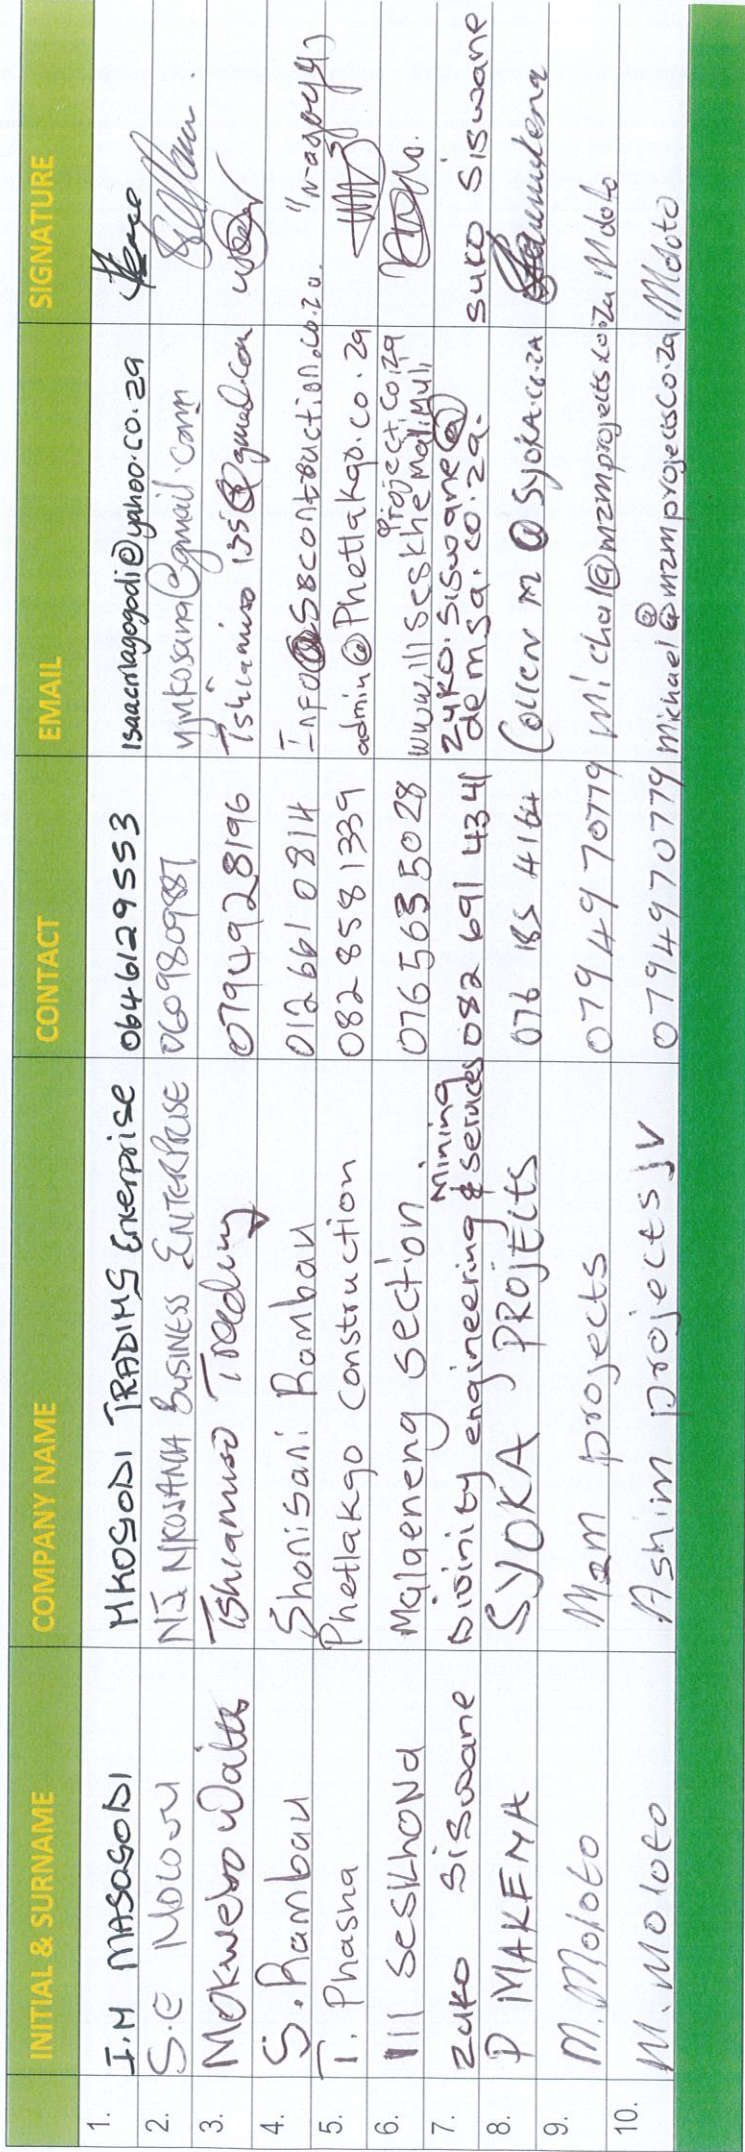 INITIAL & SURNAME COMPANY NAME CONTACT EMAIL SIGNATURE
1. I.M MASOGODI MKOGODI TRADING Enterprise 0646129553
2. S.C NJ NKOSANA BUSINESS ENTERPRISE 0609809887 @gmail.com
3. Mokwebo Walter Tshiamiso Trading 0794928196 Tshiamiso 135@gmail.com
4. S. Rambau Shonisani Rambau 012 661 0814 Info@SBcontruction.co.za
5. T. Phasha Phetlakgo construction 082 8581339 admin@Phetlakgo.co.za
6. Malaeneng section. 0765635028
7. Zuko Siswane Divinity engineering Mining & services 082 691 4341 Zuko.Siswane@ demsa.co.za. suko siswane
8. P MAKENA SYOKA PROJECTS 076 185 4164 Collen m @ Syoka.co.za
9. M. Moloto MZM projects 0794970779 Michal@mzmprojects.co.za
10. M. Moloto Ashim projects JV 0794970779 Michael@mzmprojects.co.za